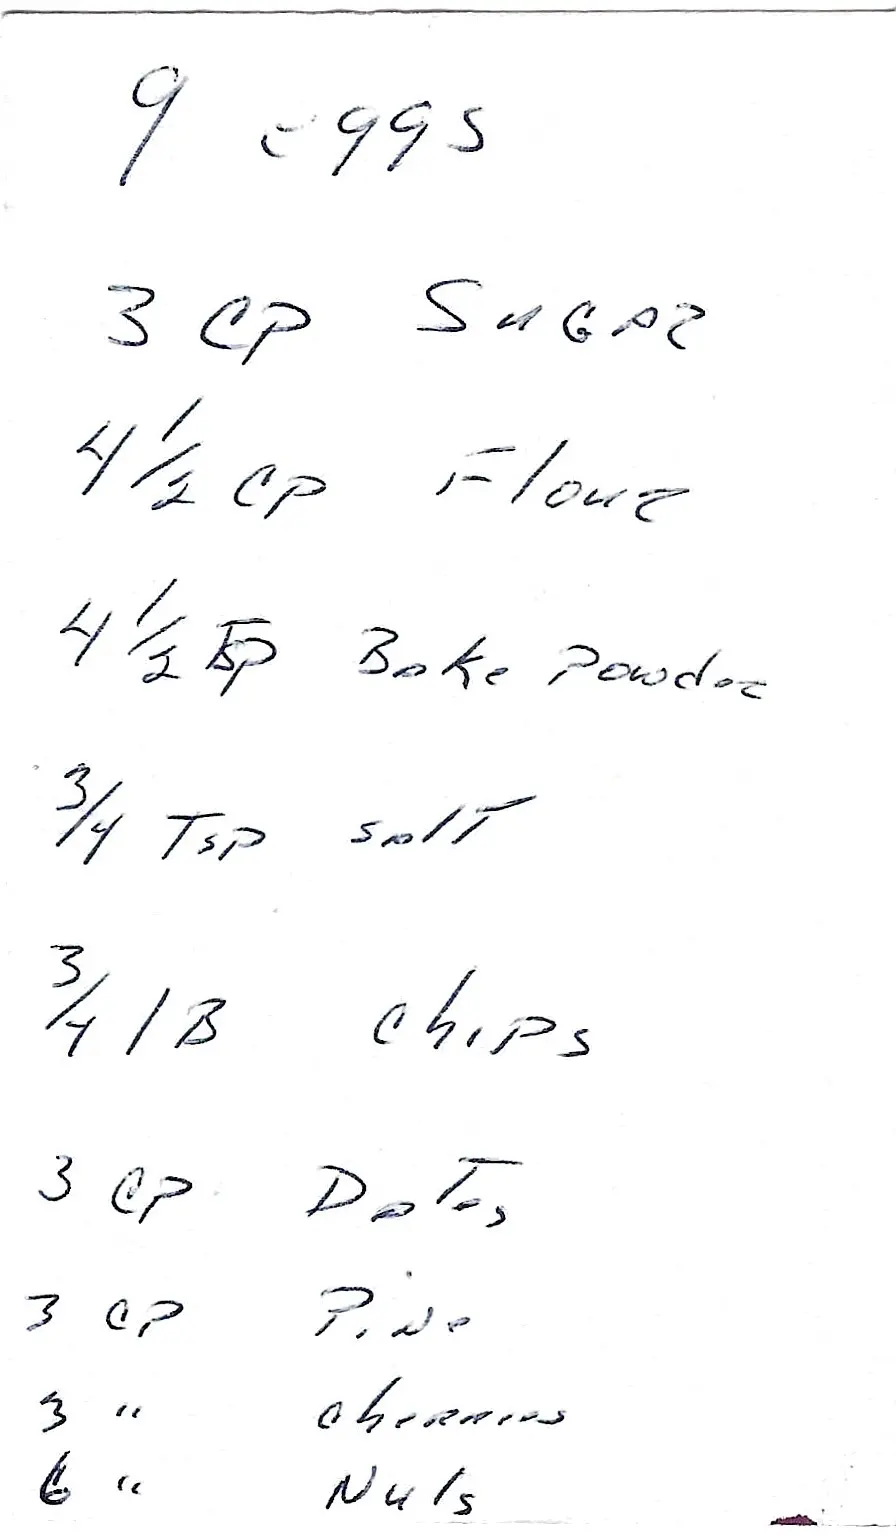 9 eggs
3 CP Sugar
4 1/2 CP Flour
4 1/2 Tsp Bake Powder
3/4 Tsp salt
3/4 lB chips
3 CP Dates
3 CP Pine
3 " cherries
6 " Nuts